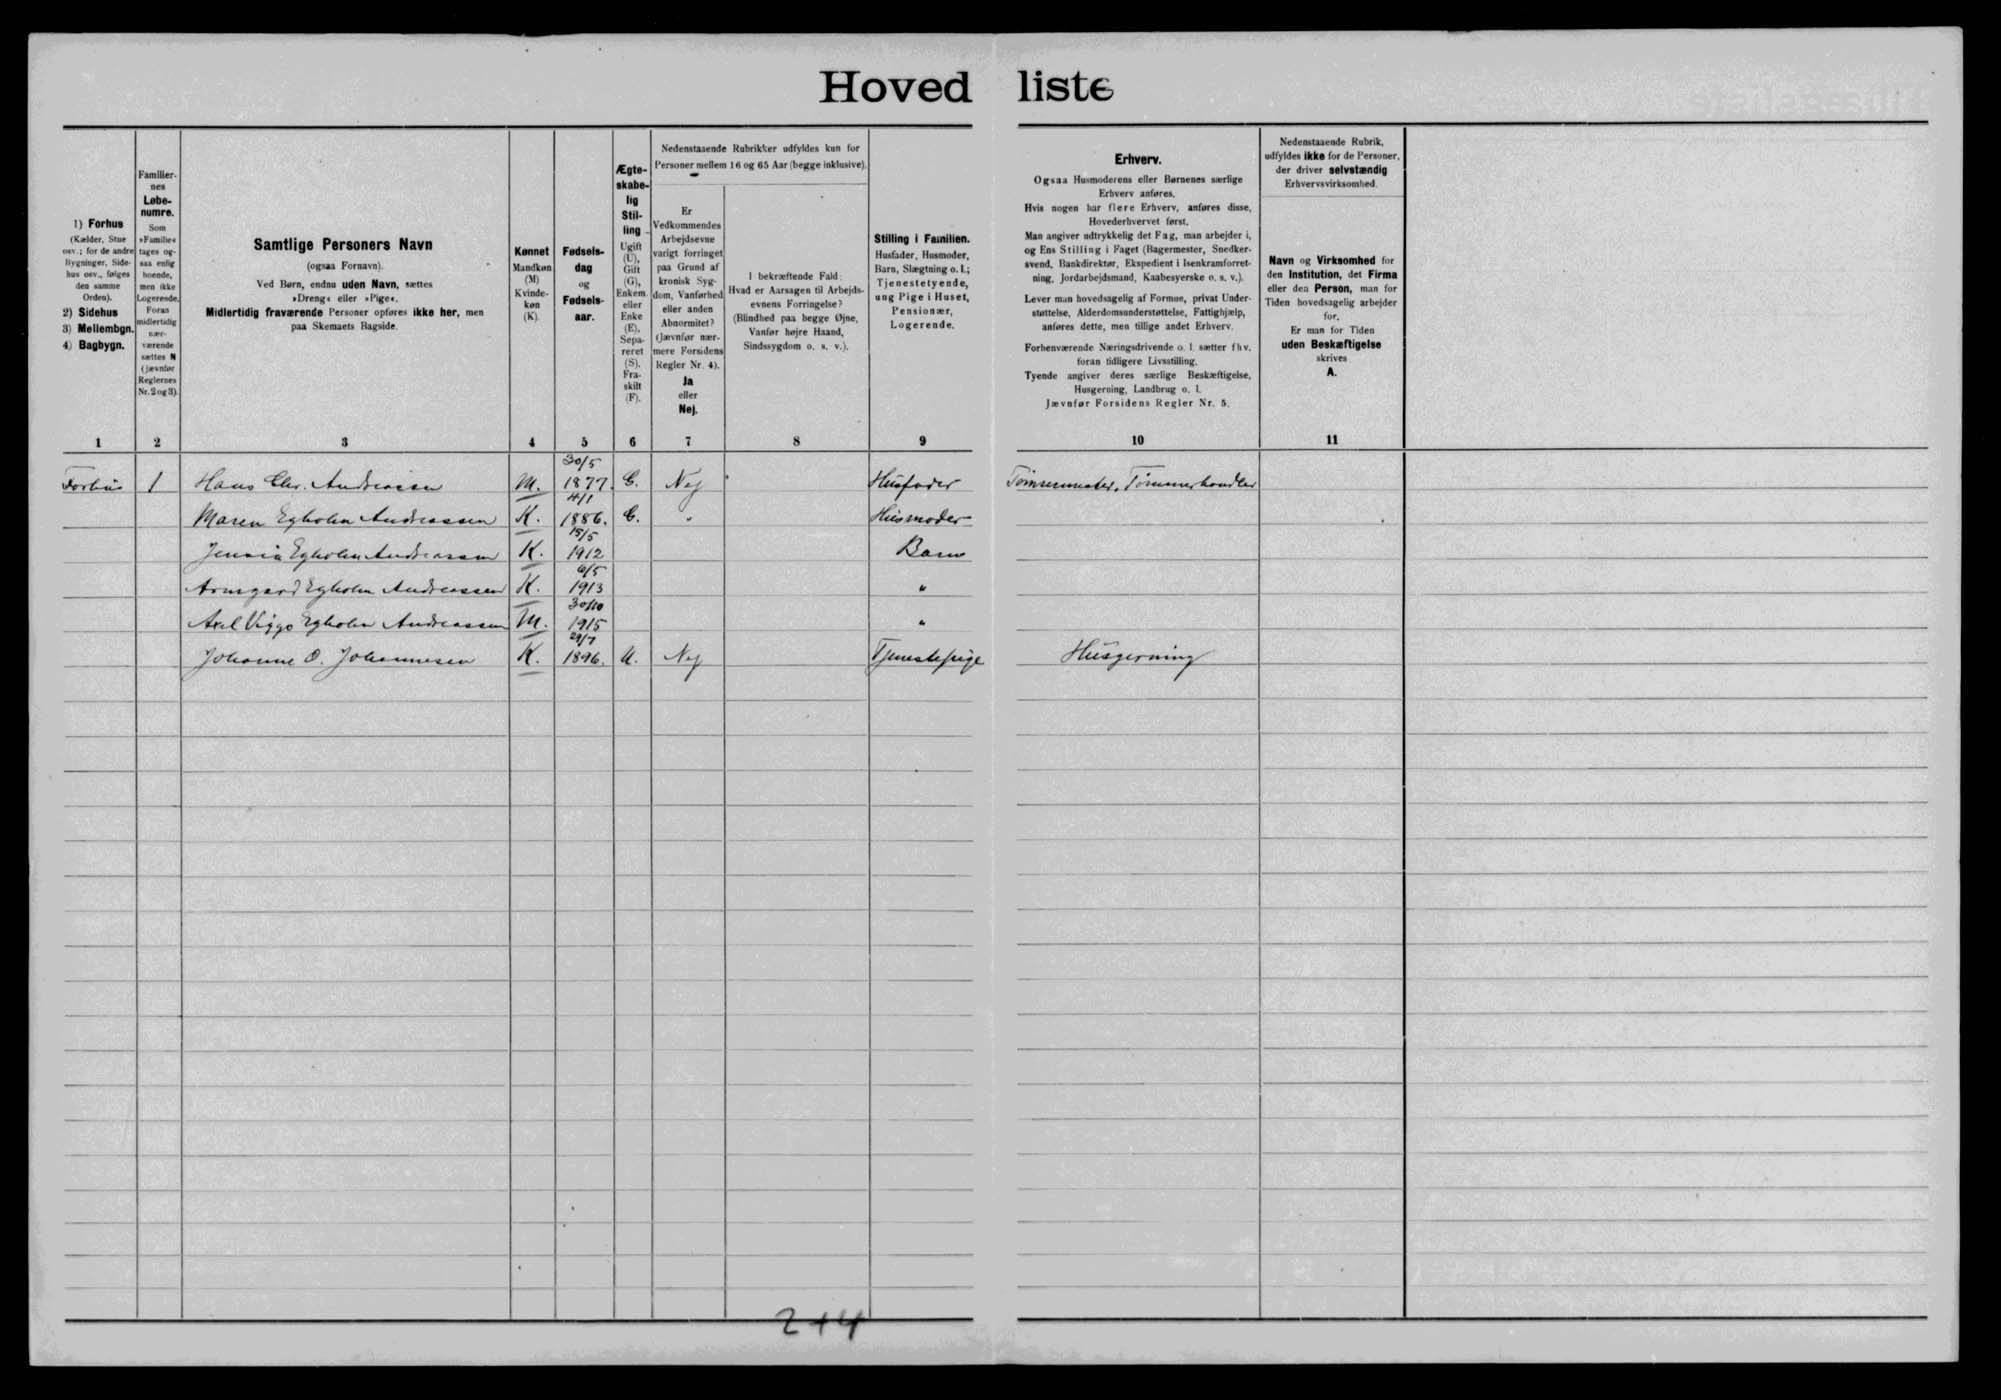 Hovedliste
1) Forhus
(Kælder, Stue
osv.; for de andre
Bygninger, Side-
hus osv., følges
den samme
Orden).
2) Sidehus
3) Mellembgn.
4) Bagbygn.
1
Familier-
nes
Løbe-
numre.
Som
»Familie«
tages og-
saa enlig
boende,
men ikke
Logerende.
Foran
midlertidig
nær-
værende
sættes N
(jævnfør
Reglernes
Nr. 2 og 3).
2
Samtlige Personers Navn
(ogsaa Fornavn).
Ved Børn, endnu uden Navn, sættes
»Dreng« eller »Pige«.
Midlertidig fraværende Personer opføres ikke her, men
paa Skemaets Bagside.
3
Kønnet
Mandkøn
(M)
Kvinde-
køn
(K).
4
Fødsels-
dag
og
Fødsels-
aar.
5
Ægte-
skabe-
lig
Stil-
ling
Ugift
(U),
Gift
(G),
Enkem.
eller
Enke
(E),
Sepa-
reret
(S),
Fra-
skilt
(F).
6
Nedenstaaende Rubrikker udfyldes kun for
Personer mellem 16 og 65 Aar (begge inklusive).
Er
Vedkommendes
Arbejdsevne
varigt forringet
paa Grund af
kronisk Syg-
dom, Vanførhed
eller anden
Abnormitet?
(Jævnfør nær-
mere Forsidens
Regler Nr. 4).
Ja
eller
Nej.
7
I bekræftende Fald:
Hvad er Aarsagen til Arbejds-
evnens Forringelse?
(Blindhed paa begge Øjne,
Vanfør højre Haand,
Sindssygdom o. s. v.).
8
Stilling i Familien.
Husfader, Husmoder,
Barn, Slægtning o. l.;
Tjenestetyende,
ung Pige i Huset,
Pensionær,
Logerende.
9
Erhverv.
Ogsaa Husmoderens eller Børnenes særlige
Erhverv anføres.
Hvis nogen har flere Erhverv, anføres disse,
Hovederhvervet først.
Man angiver udtrykkelig det Fag, man arbejder i,
og Ens Stilling i Faget (Bagermester, Snedker-
svend, Bankdirektør, Ekspedient i Isenkramforret-
ning, Jordarbejdsmand, Kaabesyerske o. s. v.).
Lever man hovedsagelig af Formue, privat Under-
støttelse, Alderdomsunderstøttelse, Fattighjælp,
anføres dette, men tillige andet Erhverv.
Forhenværende Næringsdrivende o. l. sætter fhv.
foran tidligere Livsstilling.
Tyende angiver deres særlige Beskæftigelse,
Husgerning, Landbrug o. l.
Jævnfør Forsidens Regler Nr. 5.
10
Nedenstaaende Rubrik,
udfyldes ikke for de Personer,
der driver selvstændig
Erhvervsvirksomhed.
Navn og Virksomhed for
den Institution, det Firma
eller den Person, man for
Tiden hovedsagelig arbejder
for.
Er man for Tiden
uden Beskæftigelse
skrives
A.
11
Forhus 1 Hans Chr. Andreassen M. 30/5 1877. G. Nej Husfader Tømrermester, Tømmerhandler
Maren Egholm Andreassen K. 4/1 1886. G. " Husmoder
Jensia Egholm Andreassen K. 15/5 1912 Barn
Armgard Egholm Andreassen K. 6/5 1913 "
Axel Viggo Egholm Andreassen M. 30/10 1915 "
Johanne O. Johannesen K. 29/7 1896. U. Nej Tjenestepige Husgerning
2+4